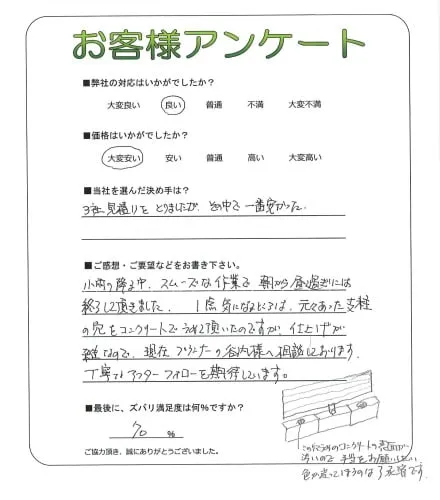 お客様アンケート
■弊社の対応はいかがでしたか?
大変良い 良い 普通 不満 大変不満
■価格はいかがでしたか?
大変安い 安い 普通 高い 大変高い
■当社を選んだ決め手は?
3社見積りをとりましたが、その中で一番安かった。
■ご感想・ご要望などをお書き下さい。
小雨の降る中、スムーズな作業で朝から昼過ぎには
終了して頂きました。1点気になるところは、元々あった支柱
の穴をコンクリートでうめて頂いたのですが、仕上げが
雑なので、現在プランナーの谷内様へ相談しております。
丁寧なアフターフォローを期待しています。
■最後に、ズバリ満足度は何%ですか?
70 %
ご協力頂き、誠にありがとうございました。
コンクリートの表面が
ので 手直をお願いしたい
色が違ってしまうのは了承済です。